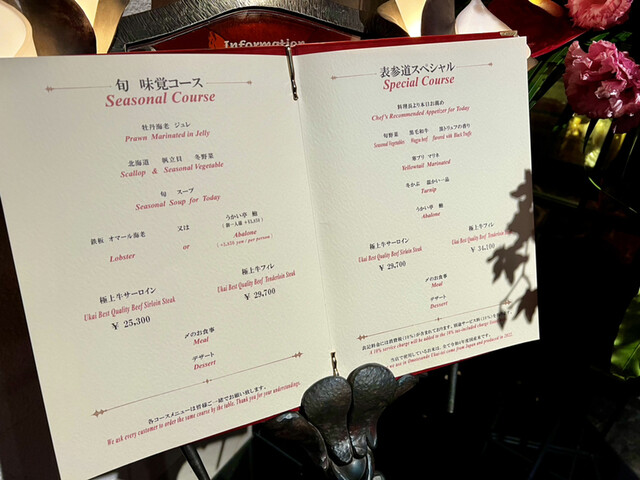 Information
旬 味覚コース
Seasonal Course
牡丹海老 ジュレ
Prawn Marinated in Jelly
北海道 帆立貝 冬野菜
Scallop & Seasonal Vegetable
旬 スープ
Seasonal Soup for Today
鉄板 オマール海老 又は うかい亭 鮑
Lobster or Abalone
極上牛サーロイン
Ukai Best Quality Beef Sirloin Steak
¥ 25,300
極上牛フィレ
Ukai Best Quality Beef Tenderloin Steak
¥ 29,700
〆のお食事
Meal
デザート
Dessert
各コースメニューは皆様ご一緒でお願い致します。
We ask every customer to order the same course by the table. Thank you for your understandings.
表参道スペシャル
Special Course
料理長より本日お薦め
Chef's Recommended Appetizer for Today
旬野菜 黒毛和牛 黒トリュフの香り
Seasonal Vegetables Wagyu beef flavored with Black Truffe
寒ブリ マリネ
Yellowtail Marinated
冬かぶ 温かい一品
Turnip
うかい亭 鮑
Abalone
極上牛サーロイン
Ukai Best Quality Beef Sirloin Steak
¥ 29,700
極上牛フィレ
Ukai Best Quality Beef Tenderloin
¥ 34,100
〆のお食事
Meal
デザート
Dessert
A 10% service charge will be added to the 10% tax-included charge
came from Japan and produced in 2022.